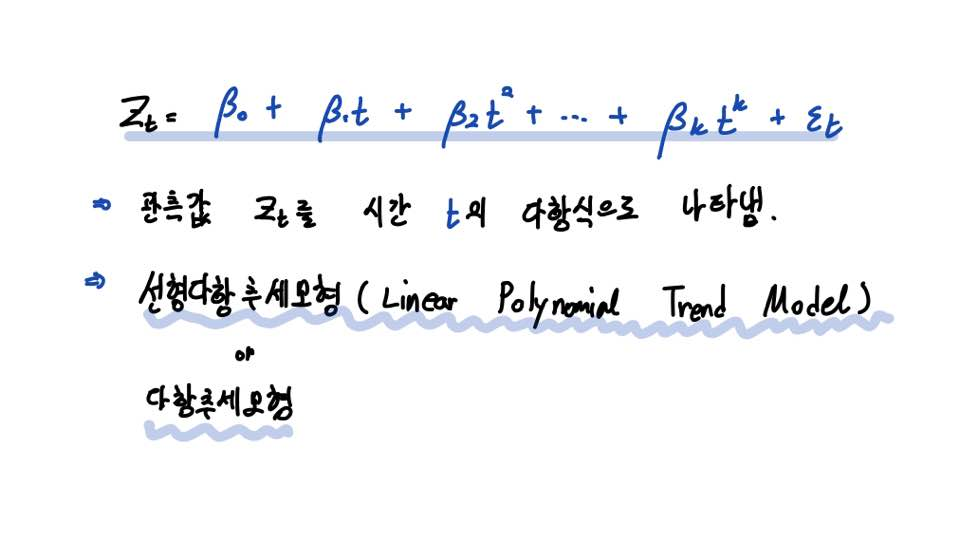 Zₜ = β₀ + β₁t + β₂t² + ... + βₖtᵏ + εₜ
⇒ 관측값 Zₜ를 시간 t의 다항식으로 나타냄.
⇒ 선형다항추세모형 (Linear Polynomial Trend Model)
or
다항추세모형